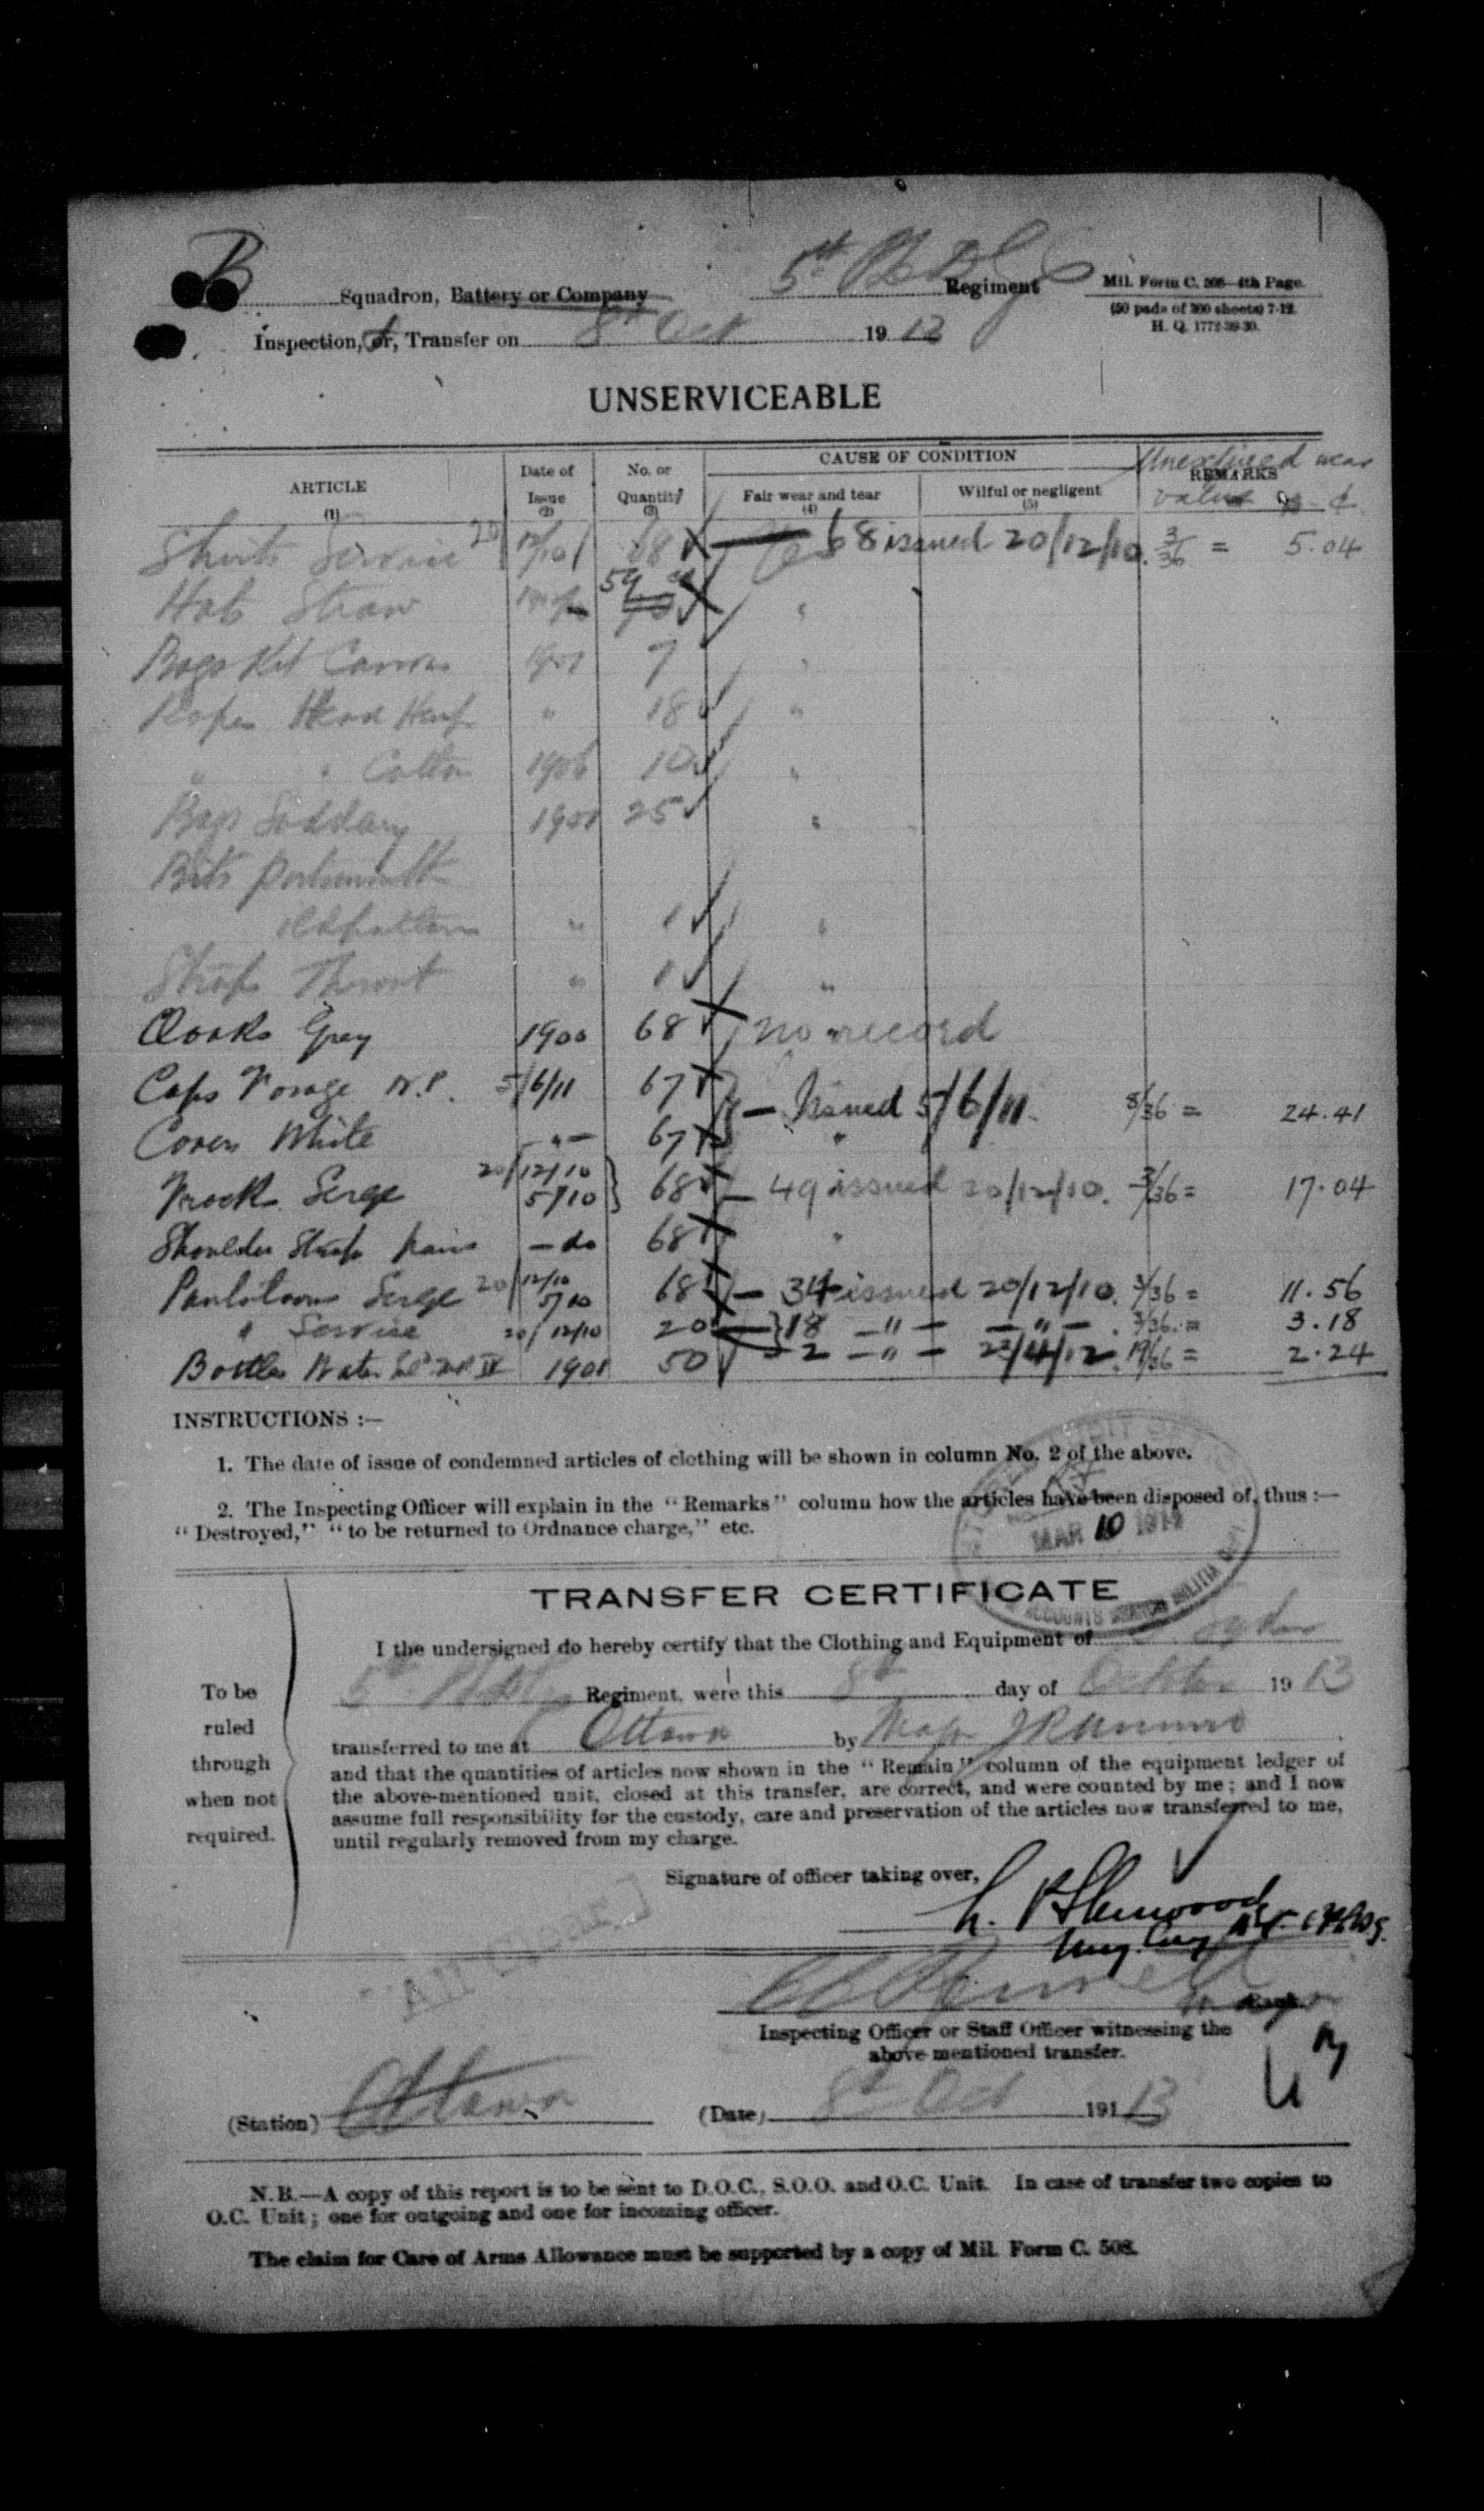 B Squadron, Battery or Company 5th Regiment
Mil. Form C. 508—4th Page.
(50 pads of 200 sheets) 7-12.
H. Q. 1772-39-30.
Inspection, or, Transfer on 8th Oct 1913
UNSERVICEABLE
ARTICLE (1) Date of Issue (2) No. or Quantity (3) CAUSE OF CONDITION REMARKS
Fair wear and tear (4) Wilful or negligent (5) Unexpired wear value $ ¢
Shirts Service 20 12/10 68 68 issued 20/12/10. 3/36 = 5.04
Hats Straw 59 "
Bags Kit Canvas 1901 7 "
Ropes Head Hemp " 18 "
" " Cotton 1906 10 "
Bags Saddlery 1901 25 "
Bits Portsmouth
old pattern " 1 "
Straps Throat " 1 "
Cloaks Grey 1900 68 no record
Caps Forage N.P. 5/6/11 67 Issued 5/6/11. 8/36 = 24.41
Covers White —"— 67 "
Frocks Serge 20/12/10 5/10 68 — 49 issued 20/12/10. 3/36 = 17.04
Shoulder Straps pairs — do 68 "
Pantaloons Serge 20/12/10 5/10 68 — 34 issued 20/12/10. 3/36 = 11.56
" Service 20/12/10 20 18 —"— —"— . 3/36 = 3.18
Bottles Water 1901 50 2 —"— 23/4/12 19/36 = 2.24
INSTRUCTIONS :—
1. The date of issue of condemned articles of clothing will be shown in column No. 2 of the above.
2. The Inspecting Officer will explain in the "Remarks" column how the articles have been disposed of, thus :—
"Destroyed," "to be returned to Ordnance charge," etc.
MAR 10
ACCOUNTS BRANCH MILITIA
TRANSFER CERTIFICATE
I the undersigned do hereby certify that the Clothing and Equipment of
5th Regiment, were this 8th day of October 1913
transferred to me at Ottawa by Major J R Munro
and that the quantities of articles now shown in the "Remain" column of the equipment ledger of
the above-mentioned unit, closed at this transfer, are correct, and were counted by me; and I now
assume full responsibility for the custody, care and preservation of the articles now transferred to me,
until regularly removed from my charge.
To be
ruled
through
when not
required.
Signature of officer taking over,
L. P. Sherwood
Major
Inspecting Officer or Staff Officer witnessing the
above mentioned transfer.
(Station) Ottawa (Date) 8th Oct 1913
N.B.—A copy of this report is to be sent to D.O.C., S.O.O. and O.C. Unit. In case of transfer two copies to
O.C. Unit; one for outgoing and one for incoming officer.
The claim for Care of Arms Allowance must be supported by a copy of Mil. Form C. 508.